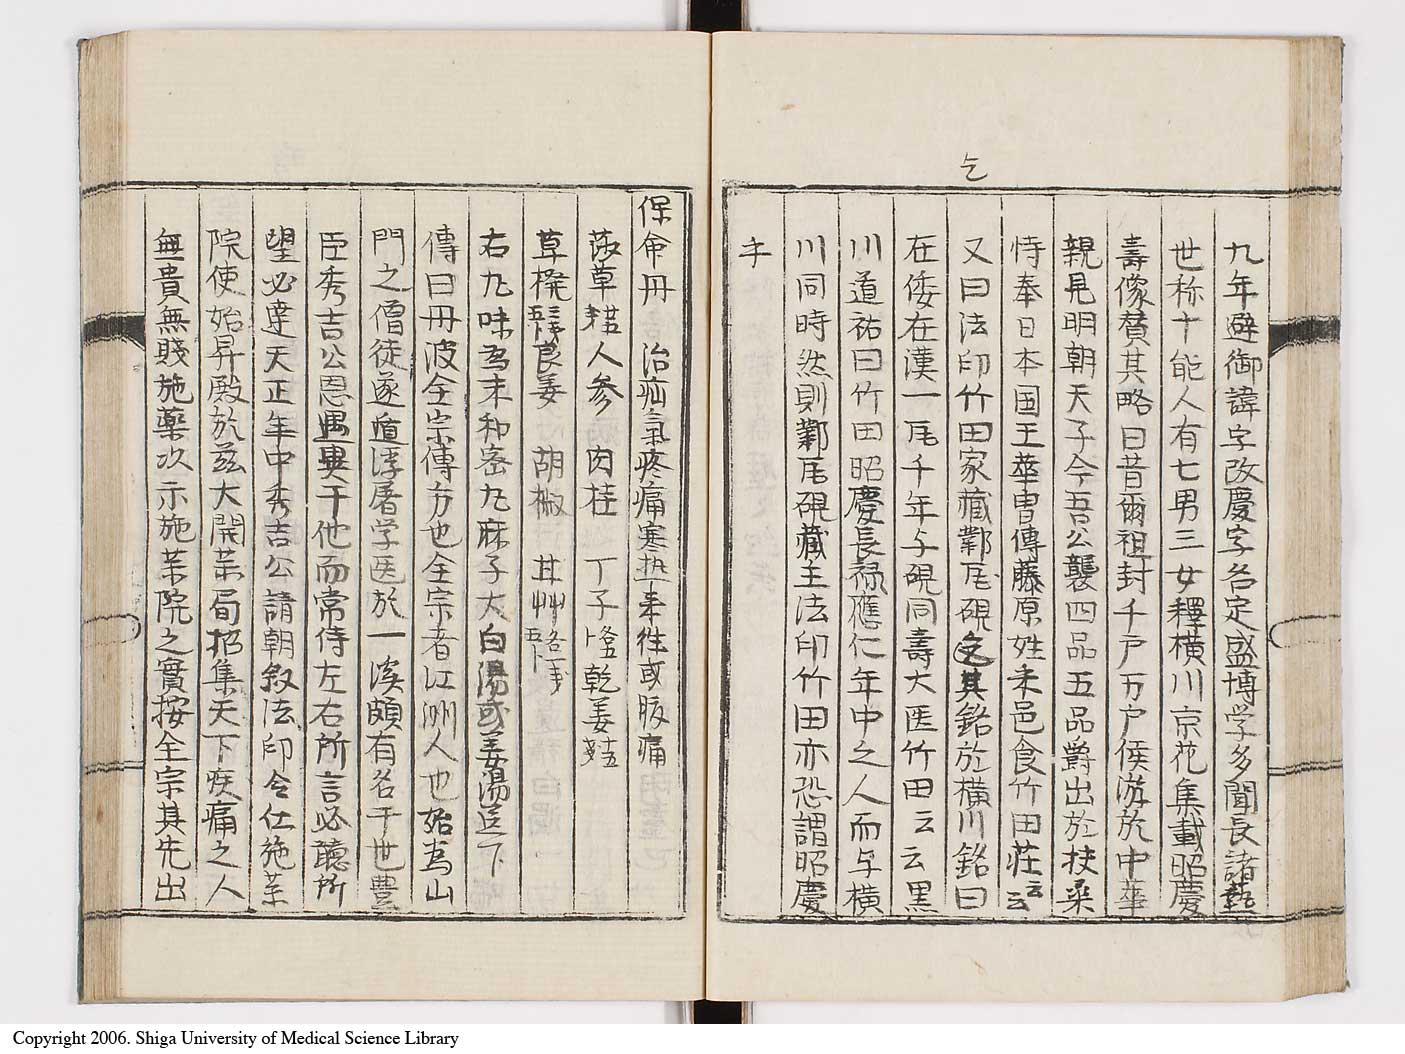 乞
九年避御諱字改慶字名定盛博学多聞長諸藝
世称十能人有七男三女釋横川京花集載昭慶
壽像賛其略曰昔爾祖封千戸万户侯游於中華
親見明朝天子今吾公襲四品五品爵出於扶桒
恃奉日本国王華曺傳藤原姓来邑食竹田荘云云
又曰法印竹田家藏鄴瓦硯乞其銘於横川銘曰
在倭在漢一瓦千年与硯同壽大医竹田云云黒
川道祐曰竹田昭慶長禄應仁年中之人而与横
川同時然則鄴瓦硯藏主法印竹田亦恐謂昭慶
乎
保命丹 治疝氣疼痛寒热来往或腹痛
莎草 人参 肉桂 丁子 乾姜
草 良姜 胡椒 甘艸
右九味為末和蜜丸麻子大白湯或姜湯送下
傳曰丹波全宗傳方也全宗者江洲人也始為山
門之僧徒遂遁浮屠学医於一溪頗有名于世豊
臣秀吉公恩遇異于他而常侍左右所言必聽所
望必達天正年中秀吉公請朝叙法印令仕施薬
院使始昇殿於茲大開薬局招集天下疾痛之人
無貴無賤施藥次示施薬院之實按全宗其先出
Copyright 2006. Shiga University of Medical Science Library